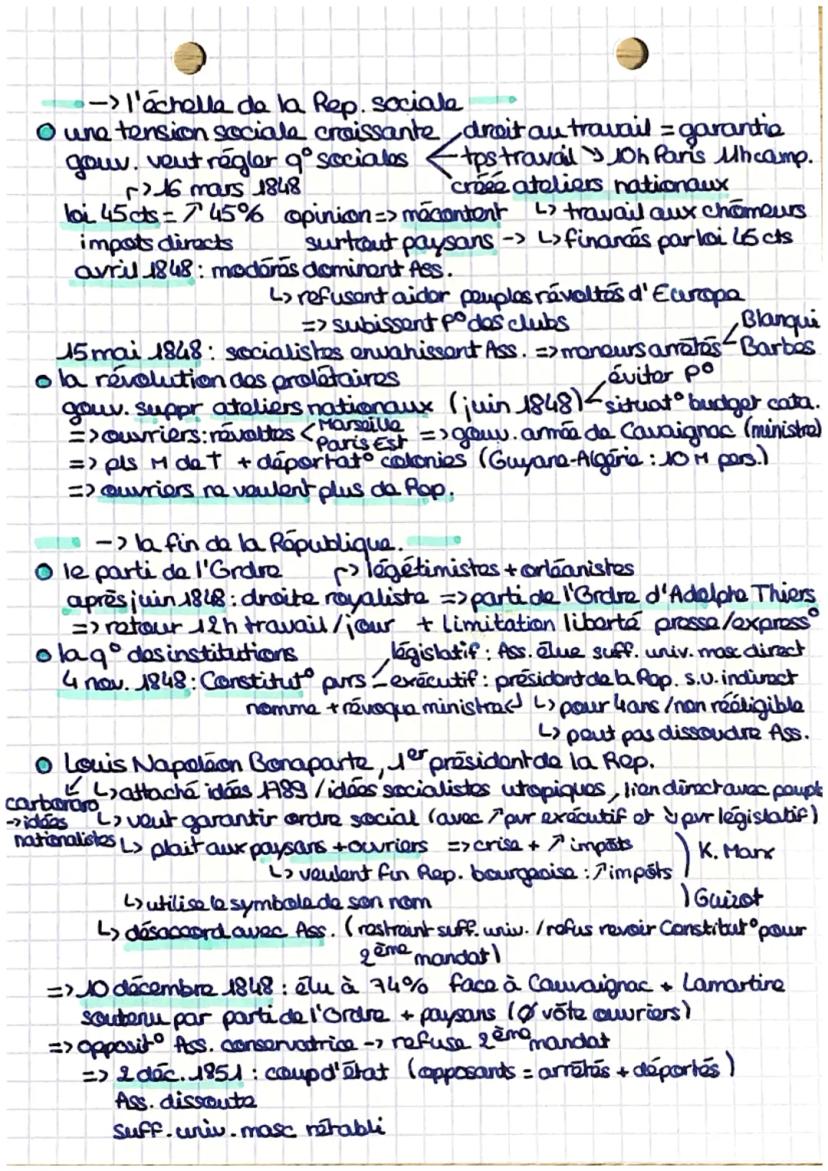 -> l'échelle de la Rep. sociale
une tension sociale croissante droit au travail = garantie
gouv. veut régler q° sociales tps travail ↘ 10h Paris 11h camp.
↱> 16 mars 1848 créé ateliers nationaux
loi 45cts = ↗ 45% opinion => mécontent ↳ travail aux chômeurs
impots directs surtout paysans -> ↳ financés par loi 45 cts
avril 1848 : modérés dominent Ass.
↳ refusent aider peuples révoltés d'Europe
=> subissent p° des clubs
Blanqui
15 mai 1848 : socialistes envahissent Ass. => meneurs arrêtés Barbes
la révolution des prolétaires éviter p°
gouv. suppr ateliers nationaux (juin 1848) situat° budget cata.
=> ouvriers : révoltes < Marseille Paris Est => gouv. armée de Cavaignac (ministre)
=> pls M de † + déportat° colonies (Guyane-Algérie : 10 M pers.)
=> ouvriers ne veulent plus de Rep.
-> la fin de la République.
le parti de l'Ordre ↱> légétimistes + orléanistes
après juin 1848 : droite royaliste => parti de l'Ordre d'Adolphe Thiers
=> retour 12h travail/jour + limitation liberté presse/express°
la q° des institutions législatif : Ass. élue suff. univ. masc direct
4 nov. 1848 : Constitut° pvrs exécutif : président de la Rep. s.u. indirect
nomme + révoque ministres ↳ pour 4ans / non rééligible
↳ peut pas dissoudre Ass.
Louis Napoléon Bonaparte, 1er président de la Rep.
↳ attaché idées 1789 / idées socialistes utopiques, lien direct avec peuple
carbonaro
-> idées nationalistes
↳ veut garantir ordre social (avec ↗ pvr exécutif et ↘ pvr législatif)
↳ plait aux paysans + ouvriers => crise + ↗ impôts
) K. Marx
↳ veulent fin Rep. bourgeoise : ↗ impôts
↳ utilise le symbole de son nom ) Guizot
↳ désaccord avec Ass. (restreint suff. univ. / refus revoir Constitut° pour
2ème mandat)
=> 10 décembre 1848 : élu à 74% face à Cauvaignac + Lamartine
soutenu par parti de l'Ordre + paysans (Ø vôte ouvriers)
=> opposit° Ass. conservatrice -> refuse 2ème mandat
=> 2 déc. 1851 : coup d'état (opposants = arrêtés + déportés)
Ass. dissoute
suff. univ. masc rétabli